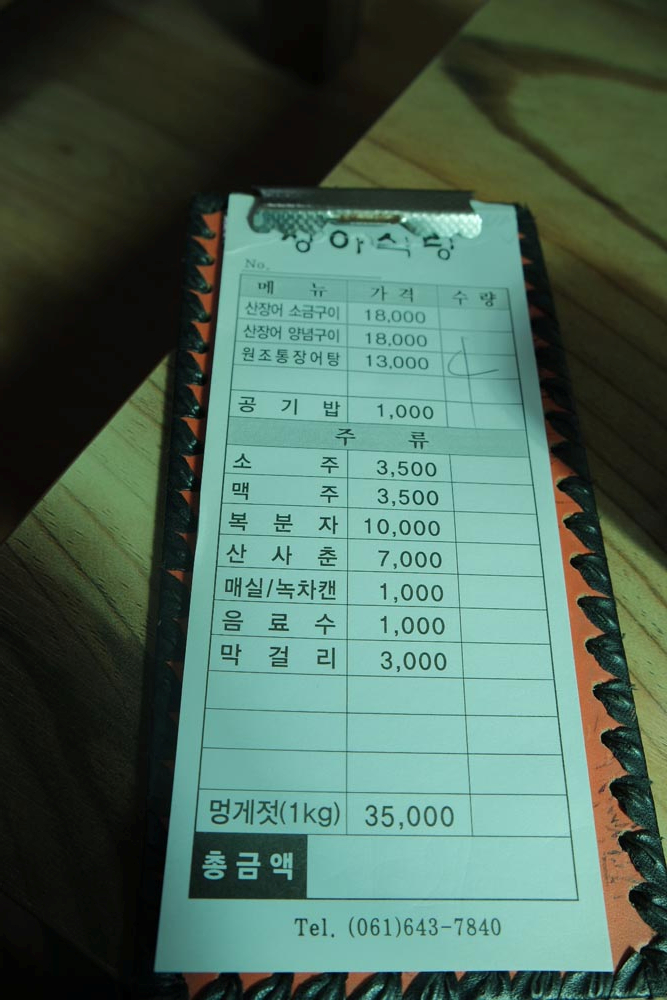 상아식당
No.
메 뉴 가 격 수 량
산장어 소금구이 18,000
산장어 양념구이 18,000
원조통장어탕 13,000
공 기 밥 1,000
주 류
소 주 3,500
맥 주 3,500
복 분 자 10,000
산 사 춘 7,000
매실/녹차캔 1,000
음 료 수 1,000
막 걸 리 3,000
멍게젓(1kg) 35,000
총금액
Tel. (061)643-7840